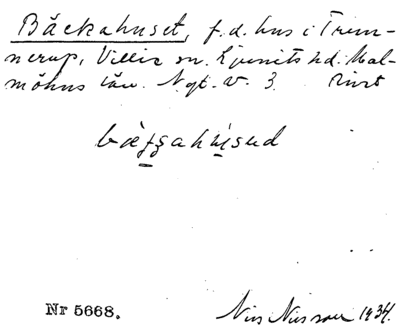 Bäckahuset, f.d. hus i Trun-
nerup, Villie sn. Ljunits hd. Mal-
möhus län. Ngt. v. 3.
Nr 5668. Nils Nilsson 1934.